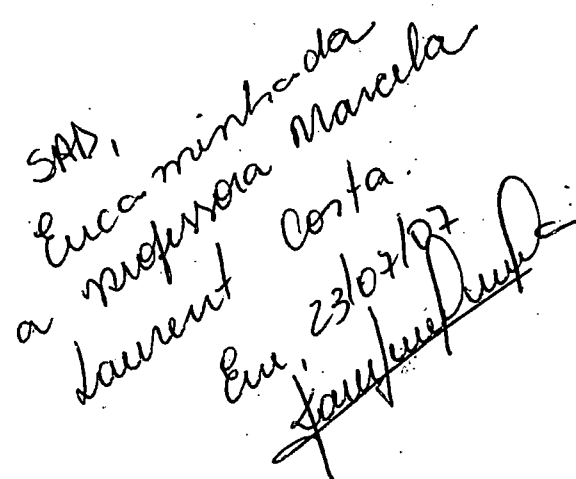 SAD,
Encaminhada
a professora Marcela
Laurent Costa.
Em, 23/07/07